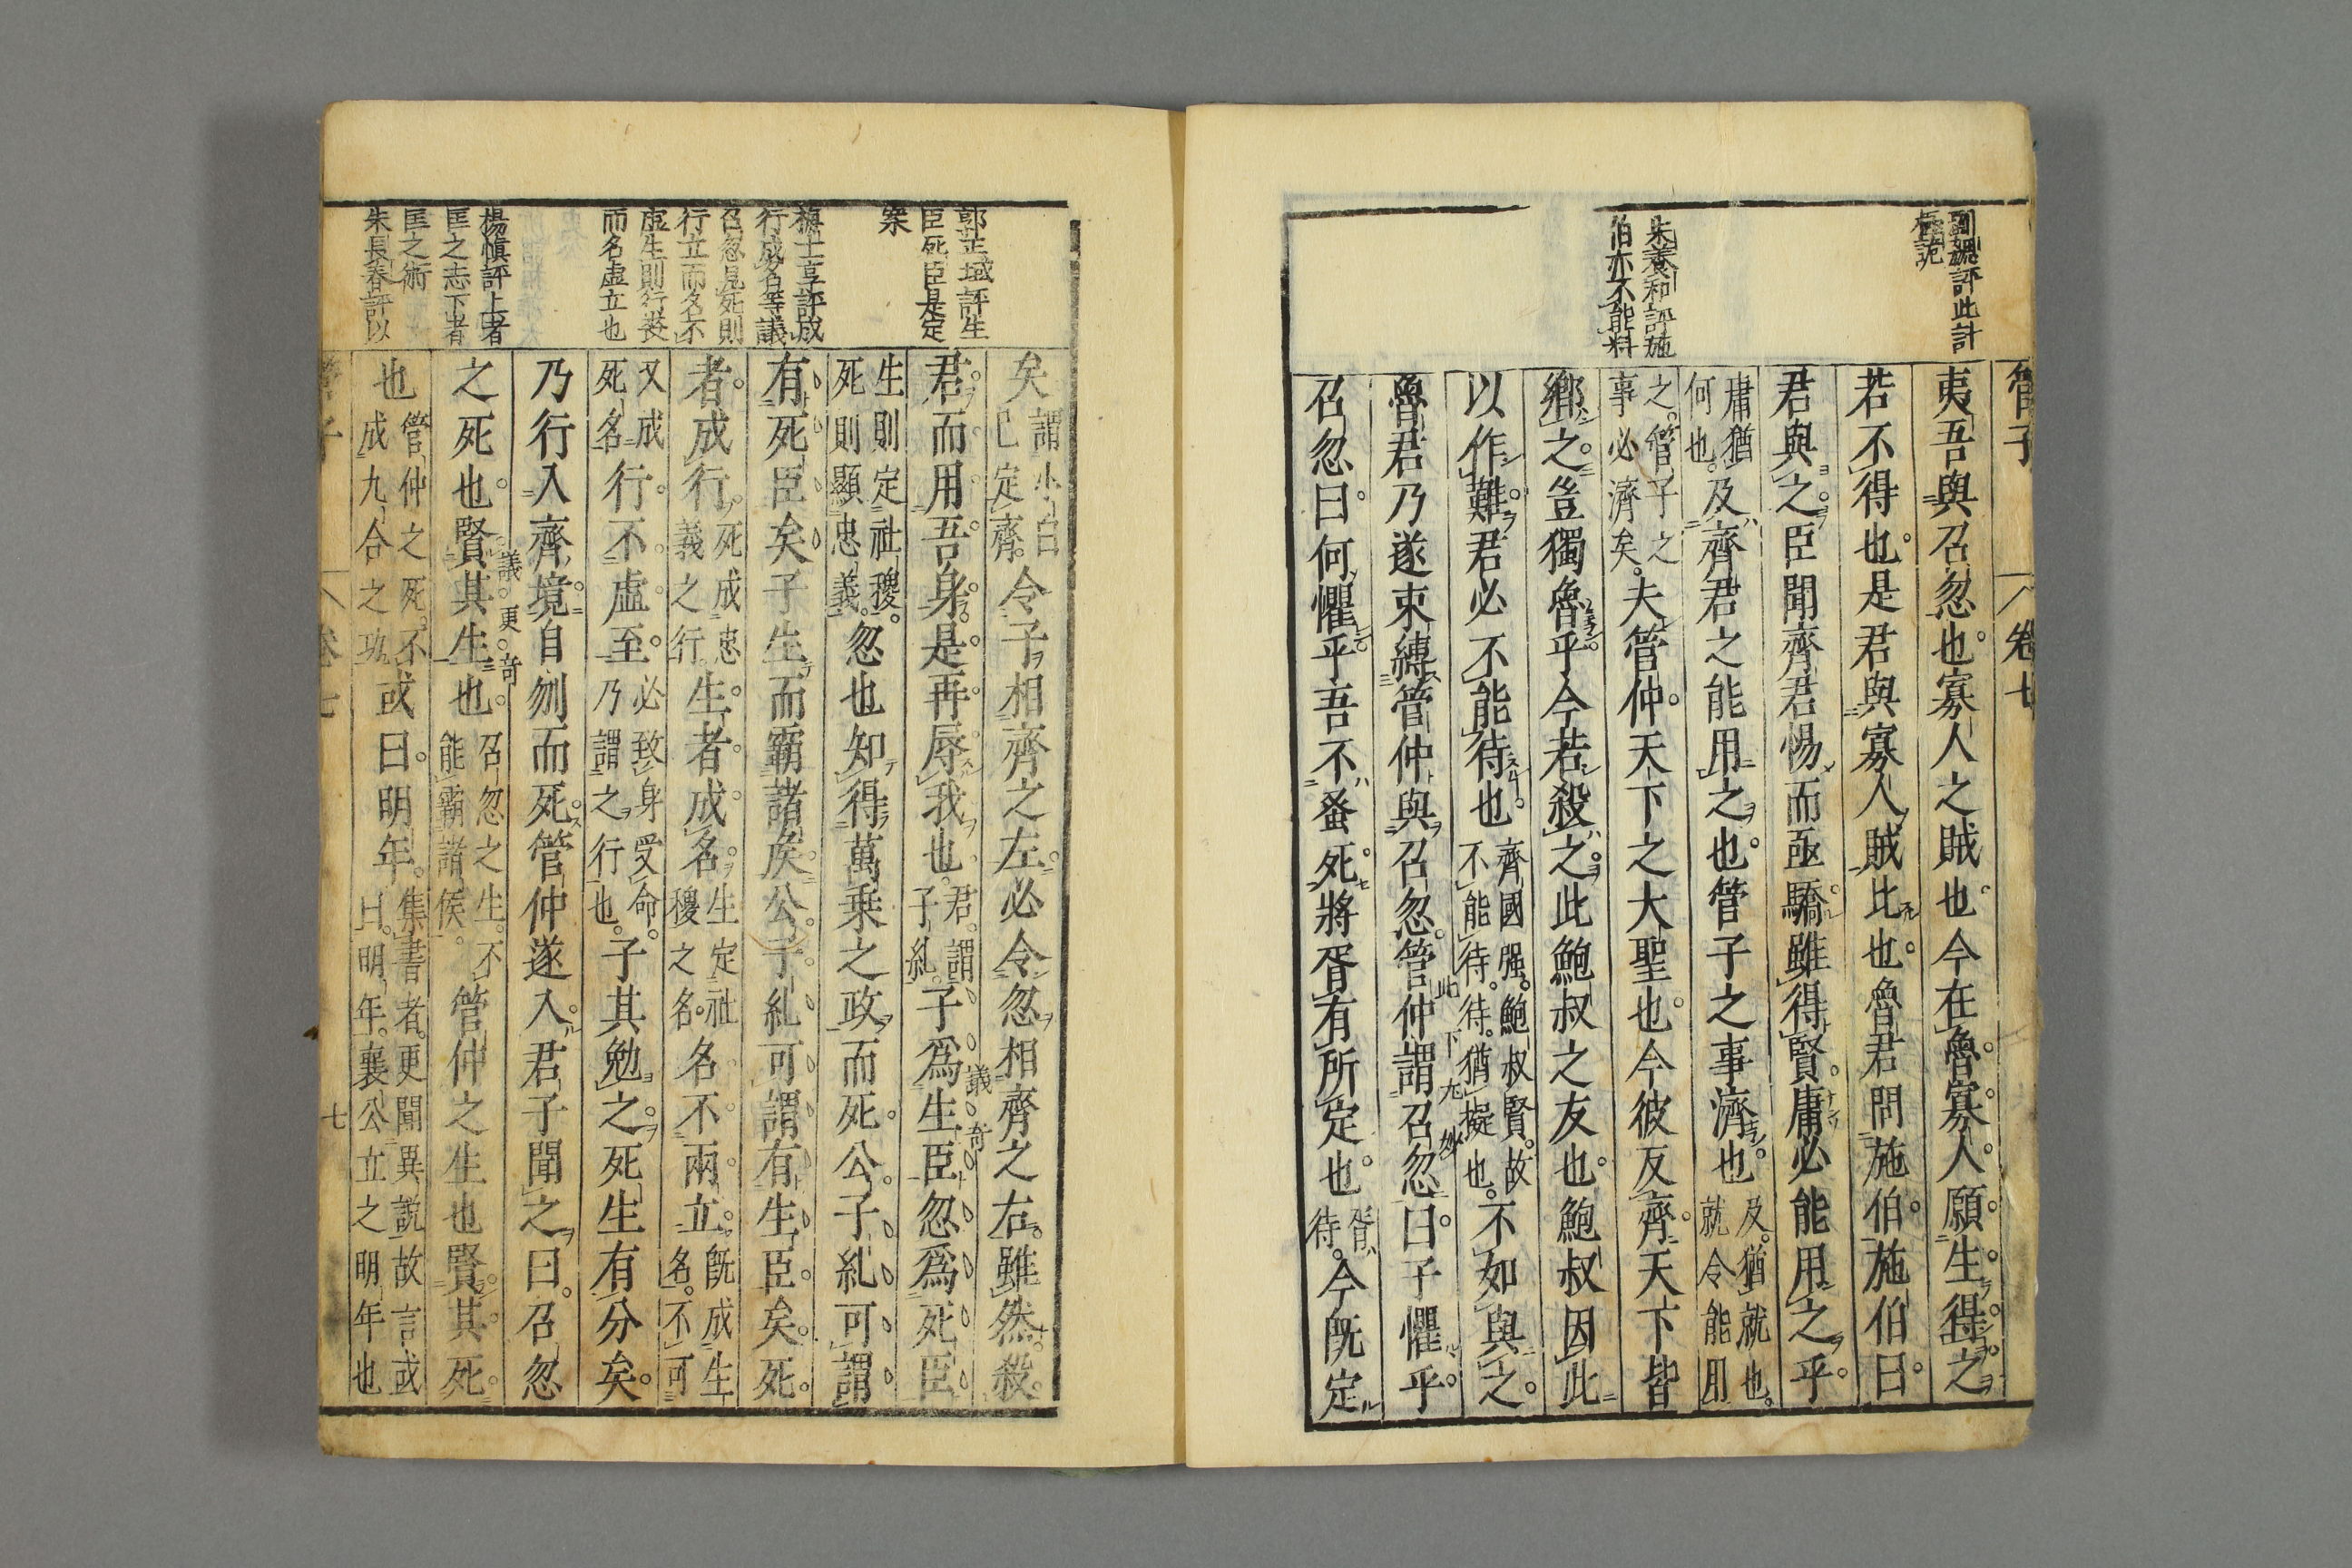 管子
卷七
劉㛹評此計
極詭
朱養和評施
伯亦不能料
夷吾與召忽也寡人之賊也今在魯寡人願生得之
若不得也是君與寡人賊比也魯君問施伯施伯曰
君與之臣聞齊君惕而亟驕雖得賢庸必能用之乎
庸猶
何也
及齊君之能用之也管子之事濟也
及猶就也
就令能用
之管子之
事必濟矣
夫管仲天下之大聖也今彼反齊天下皆
鄉之豈獨魯乎今若殺之此鮑叔之友也鮑叔因此
以作難君必不能待也
齊國强鮑叔賢故
不能待待猶擬也
不如與之
魯君乃遂束縛管仲與召忽管仲謂召忽曰子懼乎
此下尤妙
召忽曰何懼乎吾不蚤死將胥有所定也
胥
待
今既定
郭正域評生
臣死臣是定
案
梅士享評成
行成名等議
召忽見死則
行立而名不
虛生則行喪
而名虛立也
楊愼評上者
匡之志下者
匡之術
朱長春評以
矣
謂小白
已定齊
令子相齊之左必令忽相齊之右雖然殺
君而用吾身是再辱我也
君謂
子糺
子爲生臣忽爲死臣
議奇
生則定社稷
死則顯忠義
忽也知得萬乗之政而死公子糺可謂
有死臣矣子生而霸諸侯公子糺可謂有生臣矣死
者成行
死成忠
義之行
生者成名
生定社
稷之名
名不兩立
旣成生
名不可
又成
死名
行不虛至
必致身受命
乃謂之行也
子其勉之死生有分矣
乃行入齊境自刎而死管仲遂入君子聞之曰召忽
之死也賢其生也
議更奇
召忽之生不
能霸諸侯
管仲之生也賢其死
也
管仲之死不
成九合之功
或曰明年
集書者更聞異說故言或
曰明年襄公立之明年也
管子
卷七
七